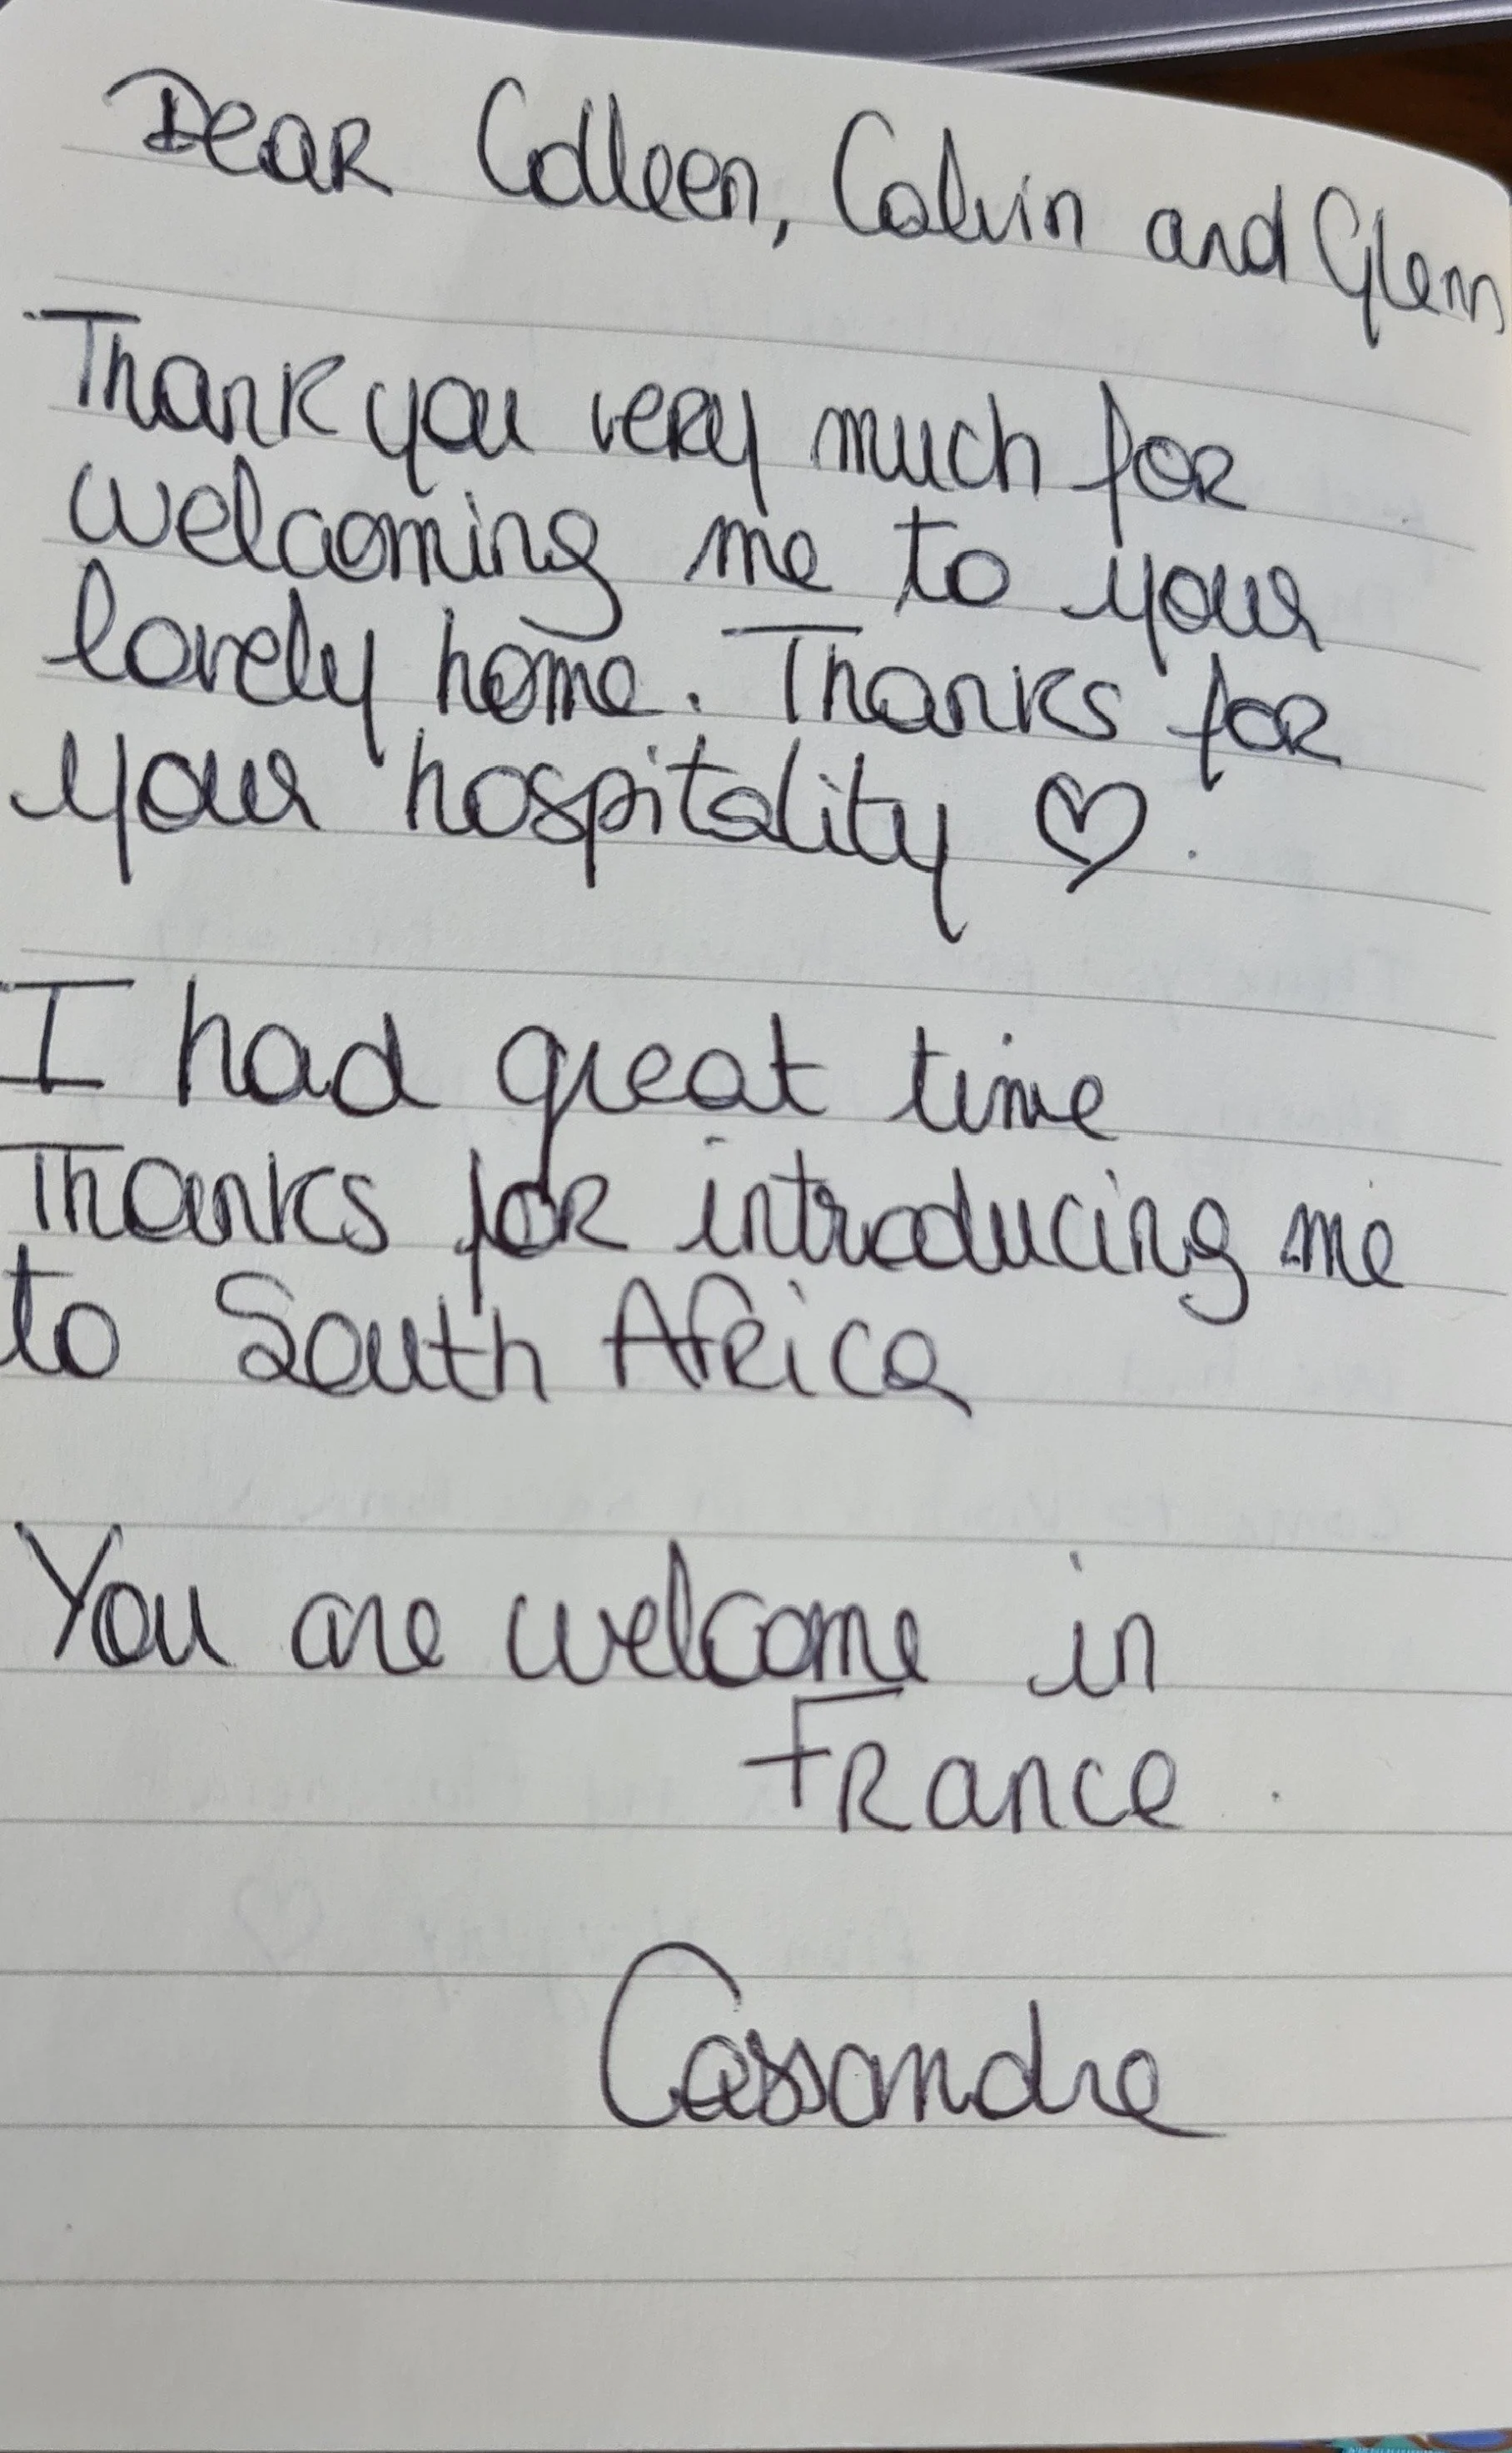 Dear Colleen, Calvin and Glenn
Thank you very much for
welcoming me to your
lovely home. Thanks for
your hospitality ♡.
I had great time
Thanks for introducing me
to South Africa
You are welcome in
France.
Cassandre